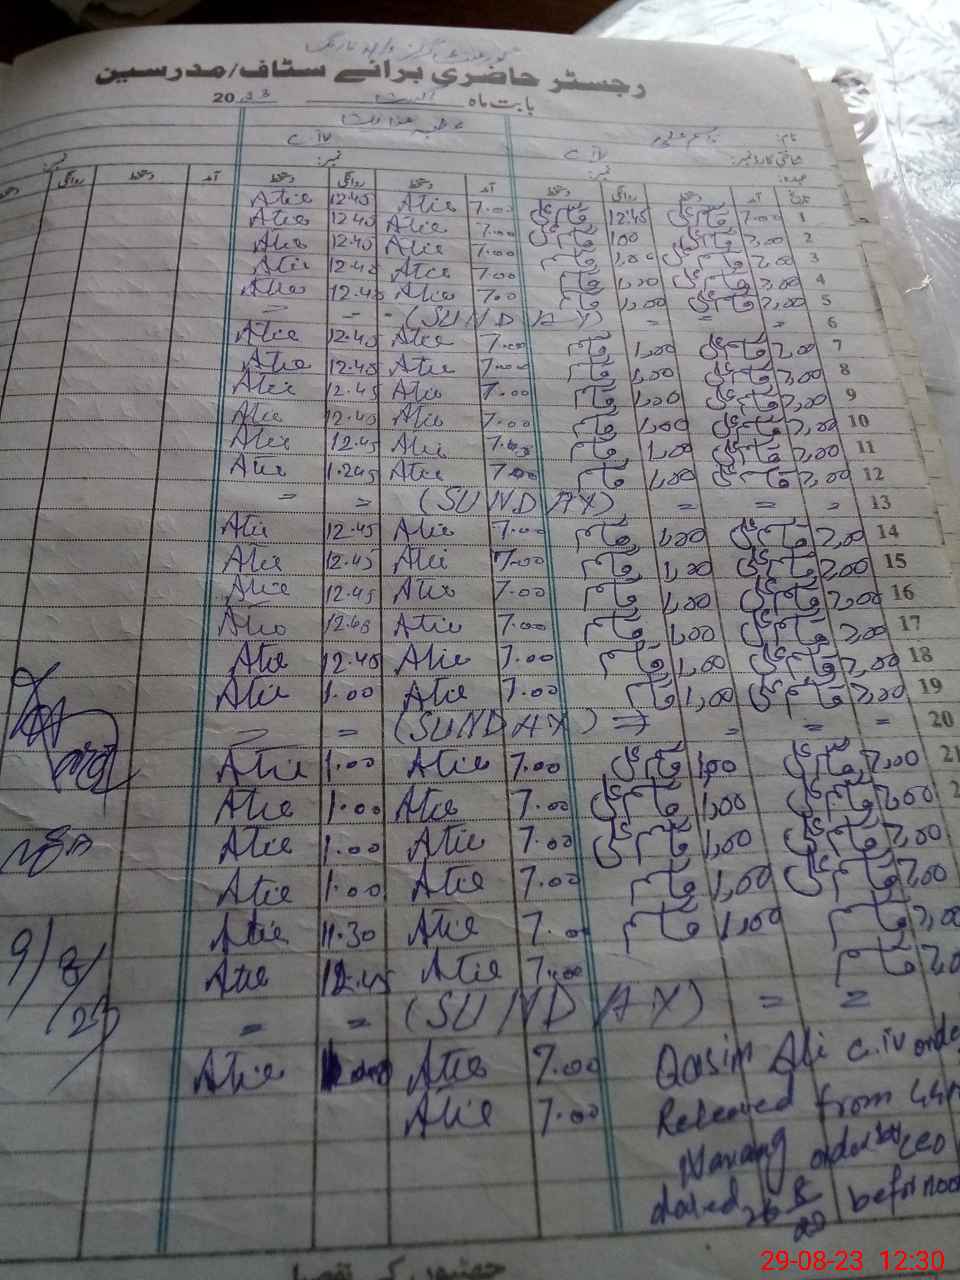 رجسٹر حاضری برائے سٹاف/مدرسین
بابت ماہ اگست 2023
نام: قاسم علی عطیہ
C.IV C.IV
نمبر: نمبر: نمبر:
عہدہ:
تاریخ آمد دستخط روانگی دستخط آمد دستخط روانگی دستخط آمد دستخط روانگی
1 7.00 قاسم علی 12.45 قاسم علی 7.00 Atie 12.45 Atie
2 7,00 قاسم علی 1,00 قاسم علی 7.00 Atie 12.45 Atie
3 7,00 قاسم علی 1,00 قاسم 7.00 Atie 12.45 Atie
4 7,00 قاسم علی 1,00 قاسم 7.00 Atie 12.45 Atie
5 7,00 قاسم علی 1,00 قاسم 7.00 Atie 12.45 Atie
6 = = = (SUNDAY) - - =
7 7,00 قاسم علی 1,00 قاسم 7.00 Atie 12.45 Atie
8 7,00 قاسم علی 1,00 قاسم 7.00 Atie 12.45 Atie
9 7,00 قاسم علی 1,00 قاسم 7.00 Atie 12.45 Atie
10 7,00 قاسم علی 1,00 قاسم 7.00 Atie 12.45 Atie
11 7,00 قاسم علی 1,00 قاسم 7.00 Atie 12.45 Atie
12 7,00 قاسم علی 1,00 قاسم 7.00 Atie Atie
13 = = = (SUNDAY) = =
14 7,00 قاسم علی 1,00 قاسم 7.00 Atie 12.45 Atie
15 7,00 قاسم علی 1,00 قاسم 7.00 Atie 12.45 Atie
16 7,00 قاسم علی 1,00 قاسم 7.00 Atie 12.45 Atie
17 7,00 قاسم علی 1,00 قاسم 7.00 Atie 12.45 Atie
18 7,00 قاسم علی 1,00 قاسم 7.00 Atie 12.45 Atie
19 7,00 قاسم علی 1,00 قاسم 7.00 Atie 1.00 Atie
20 = = = (SUNDAY) = = =
21 7,00 قاسم علی 1,00 قاسم علی 7.00 Atie 1.00 Atie
2 7,00 قاسم علی 1,00 قاسم علی 7.00 Atie 1.00 Atie
7,00 قاسم علی 1,00 قاسم علی 7.00 Atie 1.00 Atie
7,00 قاسم علی 1,00 قاسم 7.00 Atie 1.00 Atie
7,00 قاسم 1,00 قاسم 7.00 Atie 11.30 Atie
7,0 قاسم 7.00 Atie 12.45 Atie
= = (SUNDAY) = =
Qasim Ali C.iv 7.00 Atie Atie
Released from 7.00 Atie
Narang order by CEO
dated 26 8 before noon
29-08-23 12:30